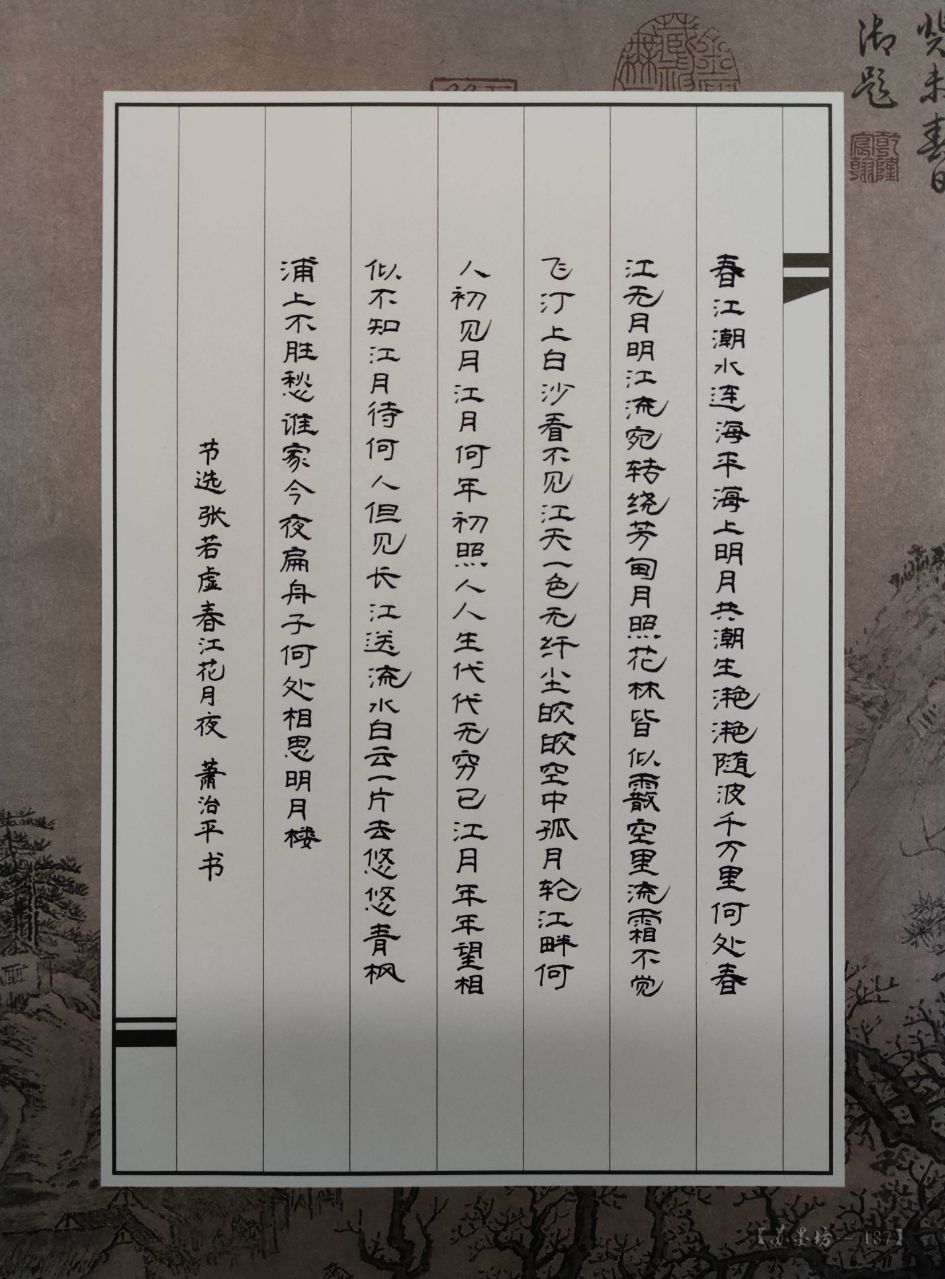 癸未春日
御题
乾隆宸翰
春江潮水连海平海上明月共潮生滟滟随波千万里何处春
江无月明江流宛转绕芳甸月照花林皆似霰空里流霜不觉
飞汀上白沙看不见江天一色无纤尘皎皎空中孤月轮江畔何
人初见月江月何年初照人人生代代无穷已江月年年望相
似不知江月待何人但见长江送流水白云一片去悠悠青枫
浦上不胜愁谁家今夜扁舟子何处相思明月楼
节选张若虚春江花月夜 萧治平书
【苏墨坊—187】